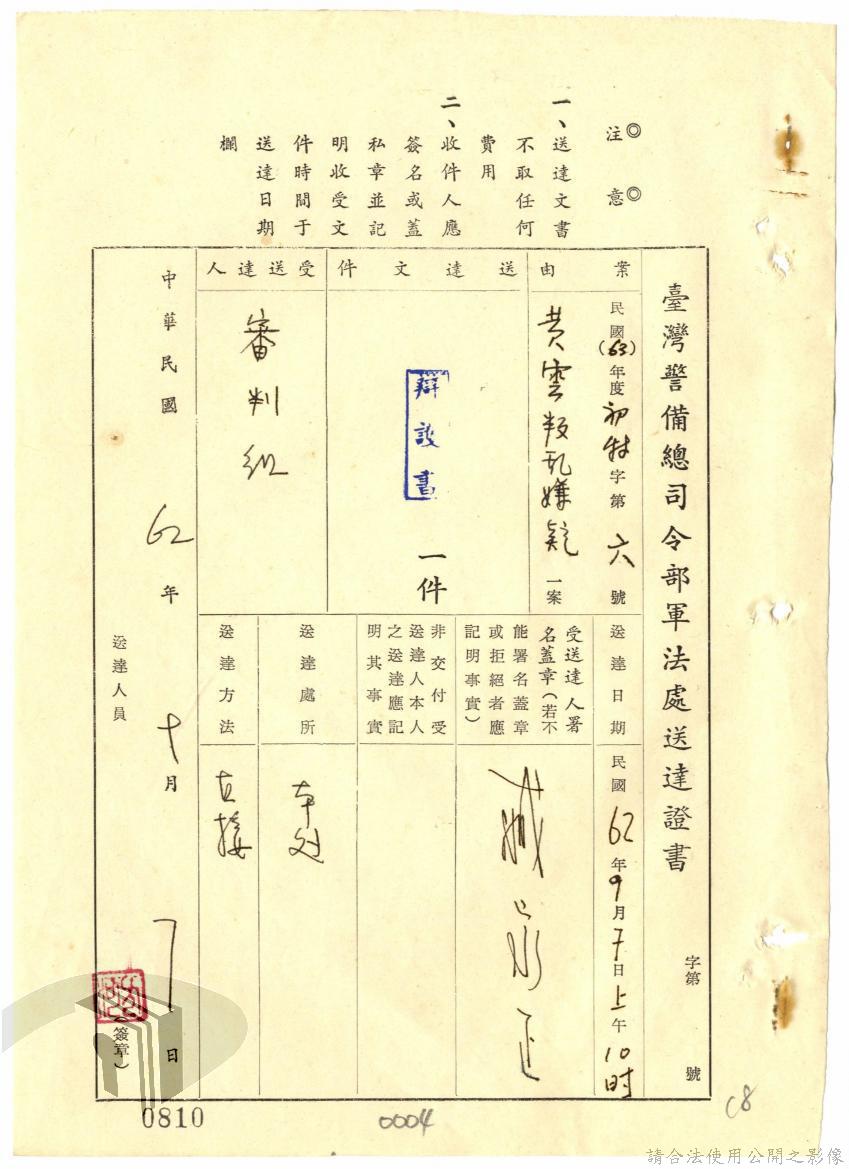 ◎注意◎
一、送達文書
不取任何
費用
二、收件人應
簽名或蓋
私章並記
明收受文
件時間于
送達日期
欄
臺灣警備總司令部軍法處送達證書 字第 號
案由
民國(63)年度初特字第六號
黃雲叛乱嫌疑一案
送達文件
辯護書
一件
受送達人
審判組
送達日期
民國62年9月7日上午10时
受送達人署
名蓋章(若不
能署名蓋章
或拒絕者應
記明事實)
臧家正
非交付受
送達人本人
之送達應記
明其事實
送達處所
本处
送達方法
直接
中華民國62年十月7日
送達人員
(簽章)
0810
0004
C8
請合法使用公開之影像